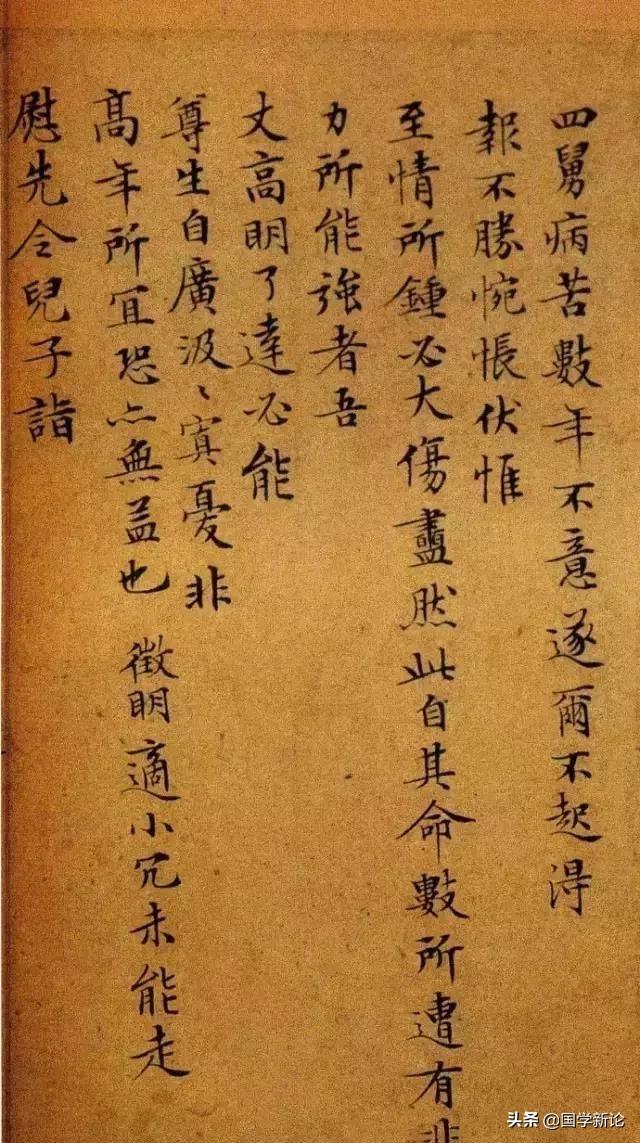 四舅病苦數年不意遂爾不起得
報不勝惋悵伏惟
至情所鍾必大傷盡然此自其命數所遭有非
力所能強者吾
丈高明了達必能
尊生自廣汲〻寘憂非
高年所宜恐亦無益也 徵明適小冗未能走
慰先令兒子詣
头条 @国学新论